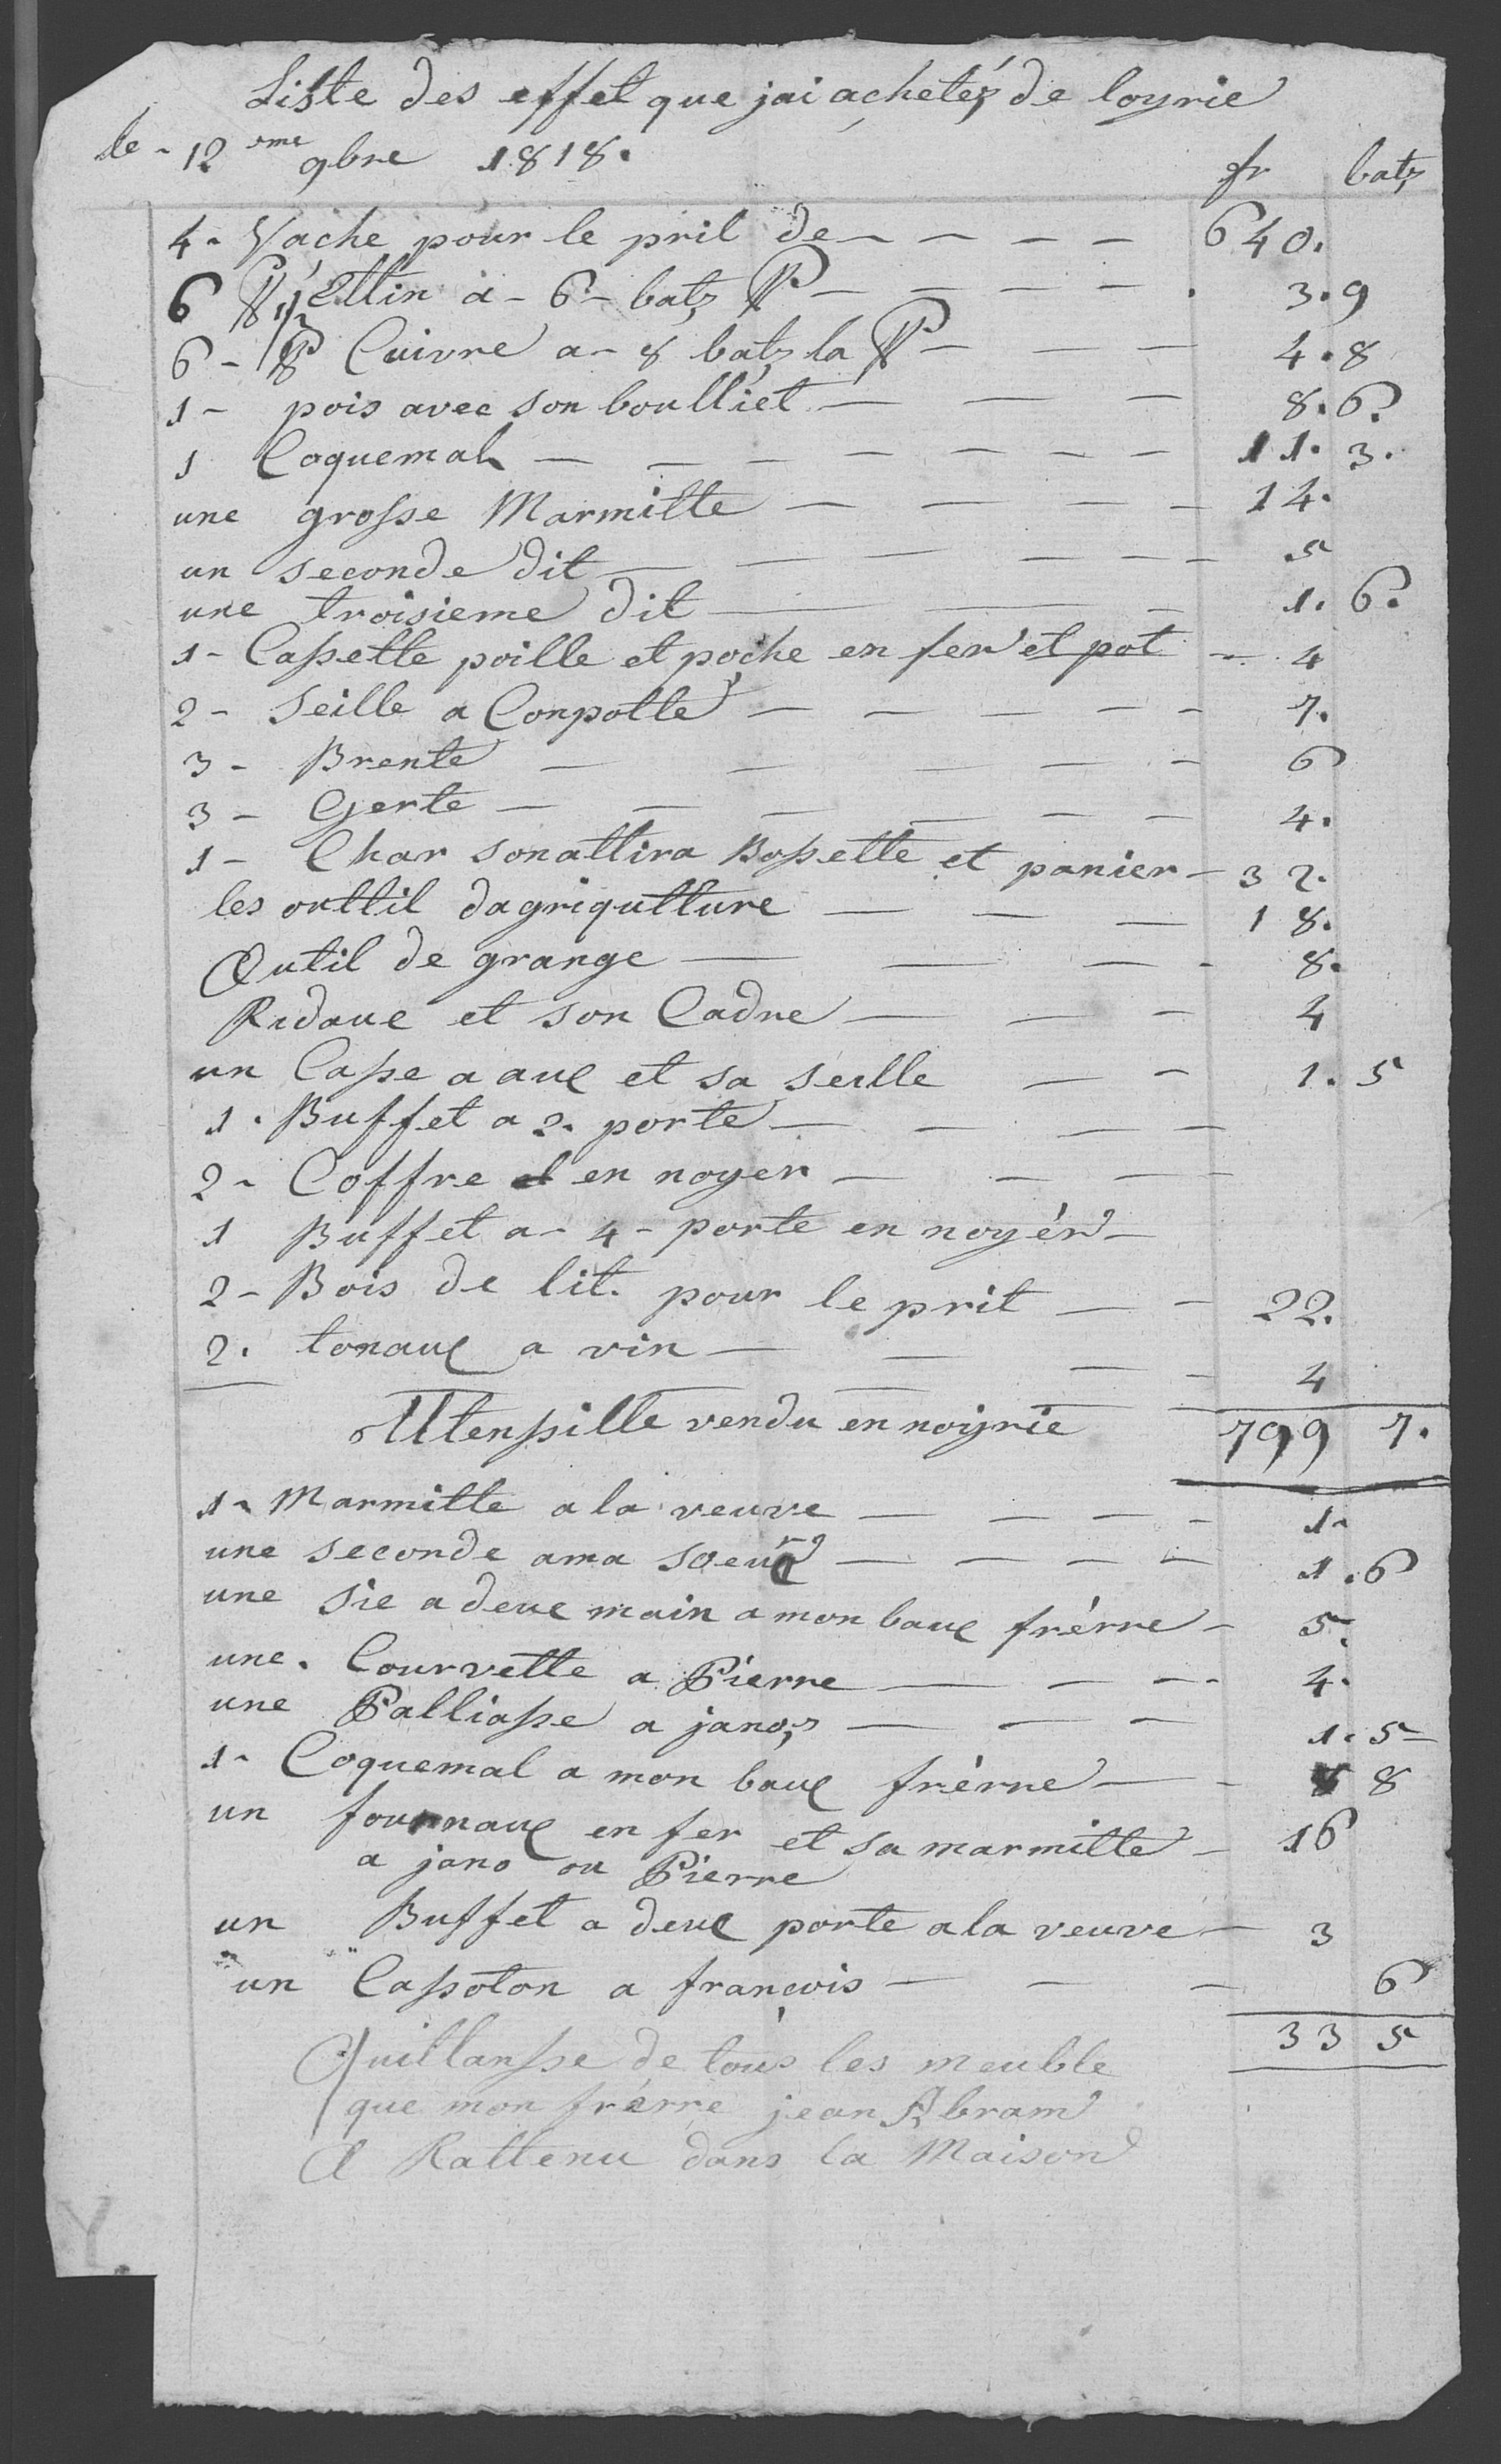 Liste des effet que jai achetéz de loyrie
le - 12 eme 9bre 1818.
fr batz
4 - Vache pour le pril de - - - - 640.
6 ℔ 1/2 Ettin à - 6 - batz ℔ - - - - 3. 9
6 - ℔ Cuivre a - 8 batz la ℔ - - - 4. 8
1 - pois avec son boulliet - - - 8. 6.
1 Coquemal - - - - - - - 11. 3.
une grosse Marmitte - - - - 14.
un seconde dit - - - - - 5
une troisieme dit - - 1. 6.
1 - Cassette poille et poche en fer et pot - 4
2 - Seille a Conpotte - - - - - 7.
3 - Brente - - - - - 6
3 - Gerte - - - - - 4.
1 - Char sonattira Bossette et panier - 32.
les outtil dagriqutture - - - 18.
Outil de grange - - - - 8.
Ridaue et son Cadre - - - 4
un Casse a aue et sa seille - - 1. 5
1. Buffet a 2. porte - - - -
2 - Coffre en noyer - - -
1 Buffet a - 4 - porte en noyér -
2 - Bois de lit. pour le prit - - 22.
2. tonaue a vin - - - - 4
Utenssille vendu en noyrie 799 7.
1 - Marmitte a la veuve - - - - - 1 -
une seconde ama soeur - - - - 1. 6
une sie a deue main a mon baue frérre - 5.
une. Courvette a Pierre - - - - 4.
une Palliasse a janoz - - - 1. 5 -
1 - Coquemal a mon baue frérre - - 8
un fournaue en fer et sa marmitte - 16
a jano ou Pierre
un Buffet a deue porte a la veuve - 3
un Cassoton a françois - - - 6
33 5
Quittansse de tous les meuble
que mon frérre jean Abram
A Rattenu dans la Maison
Y.